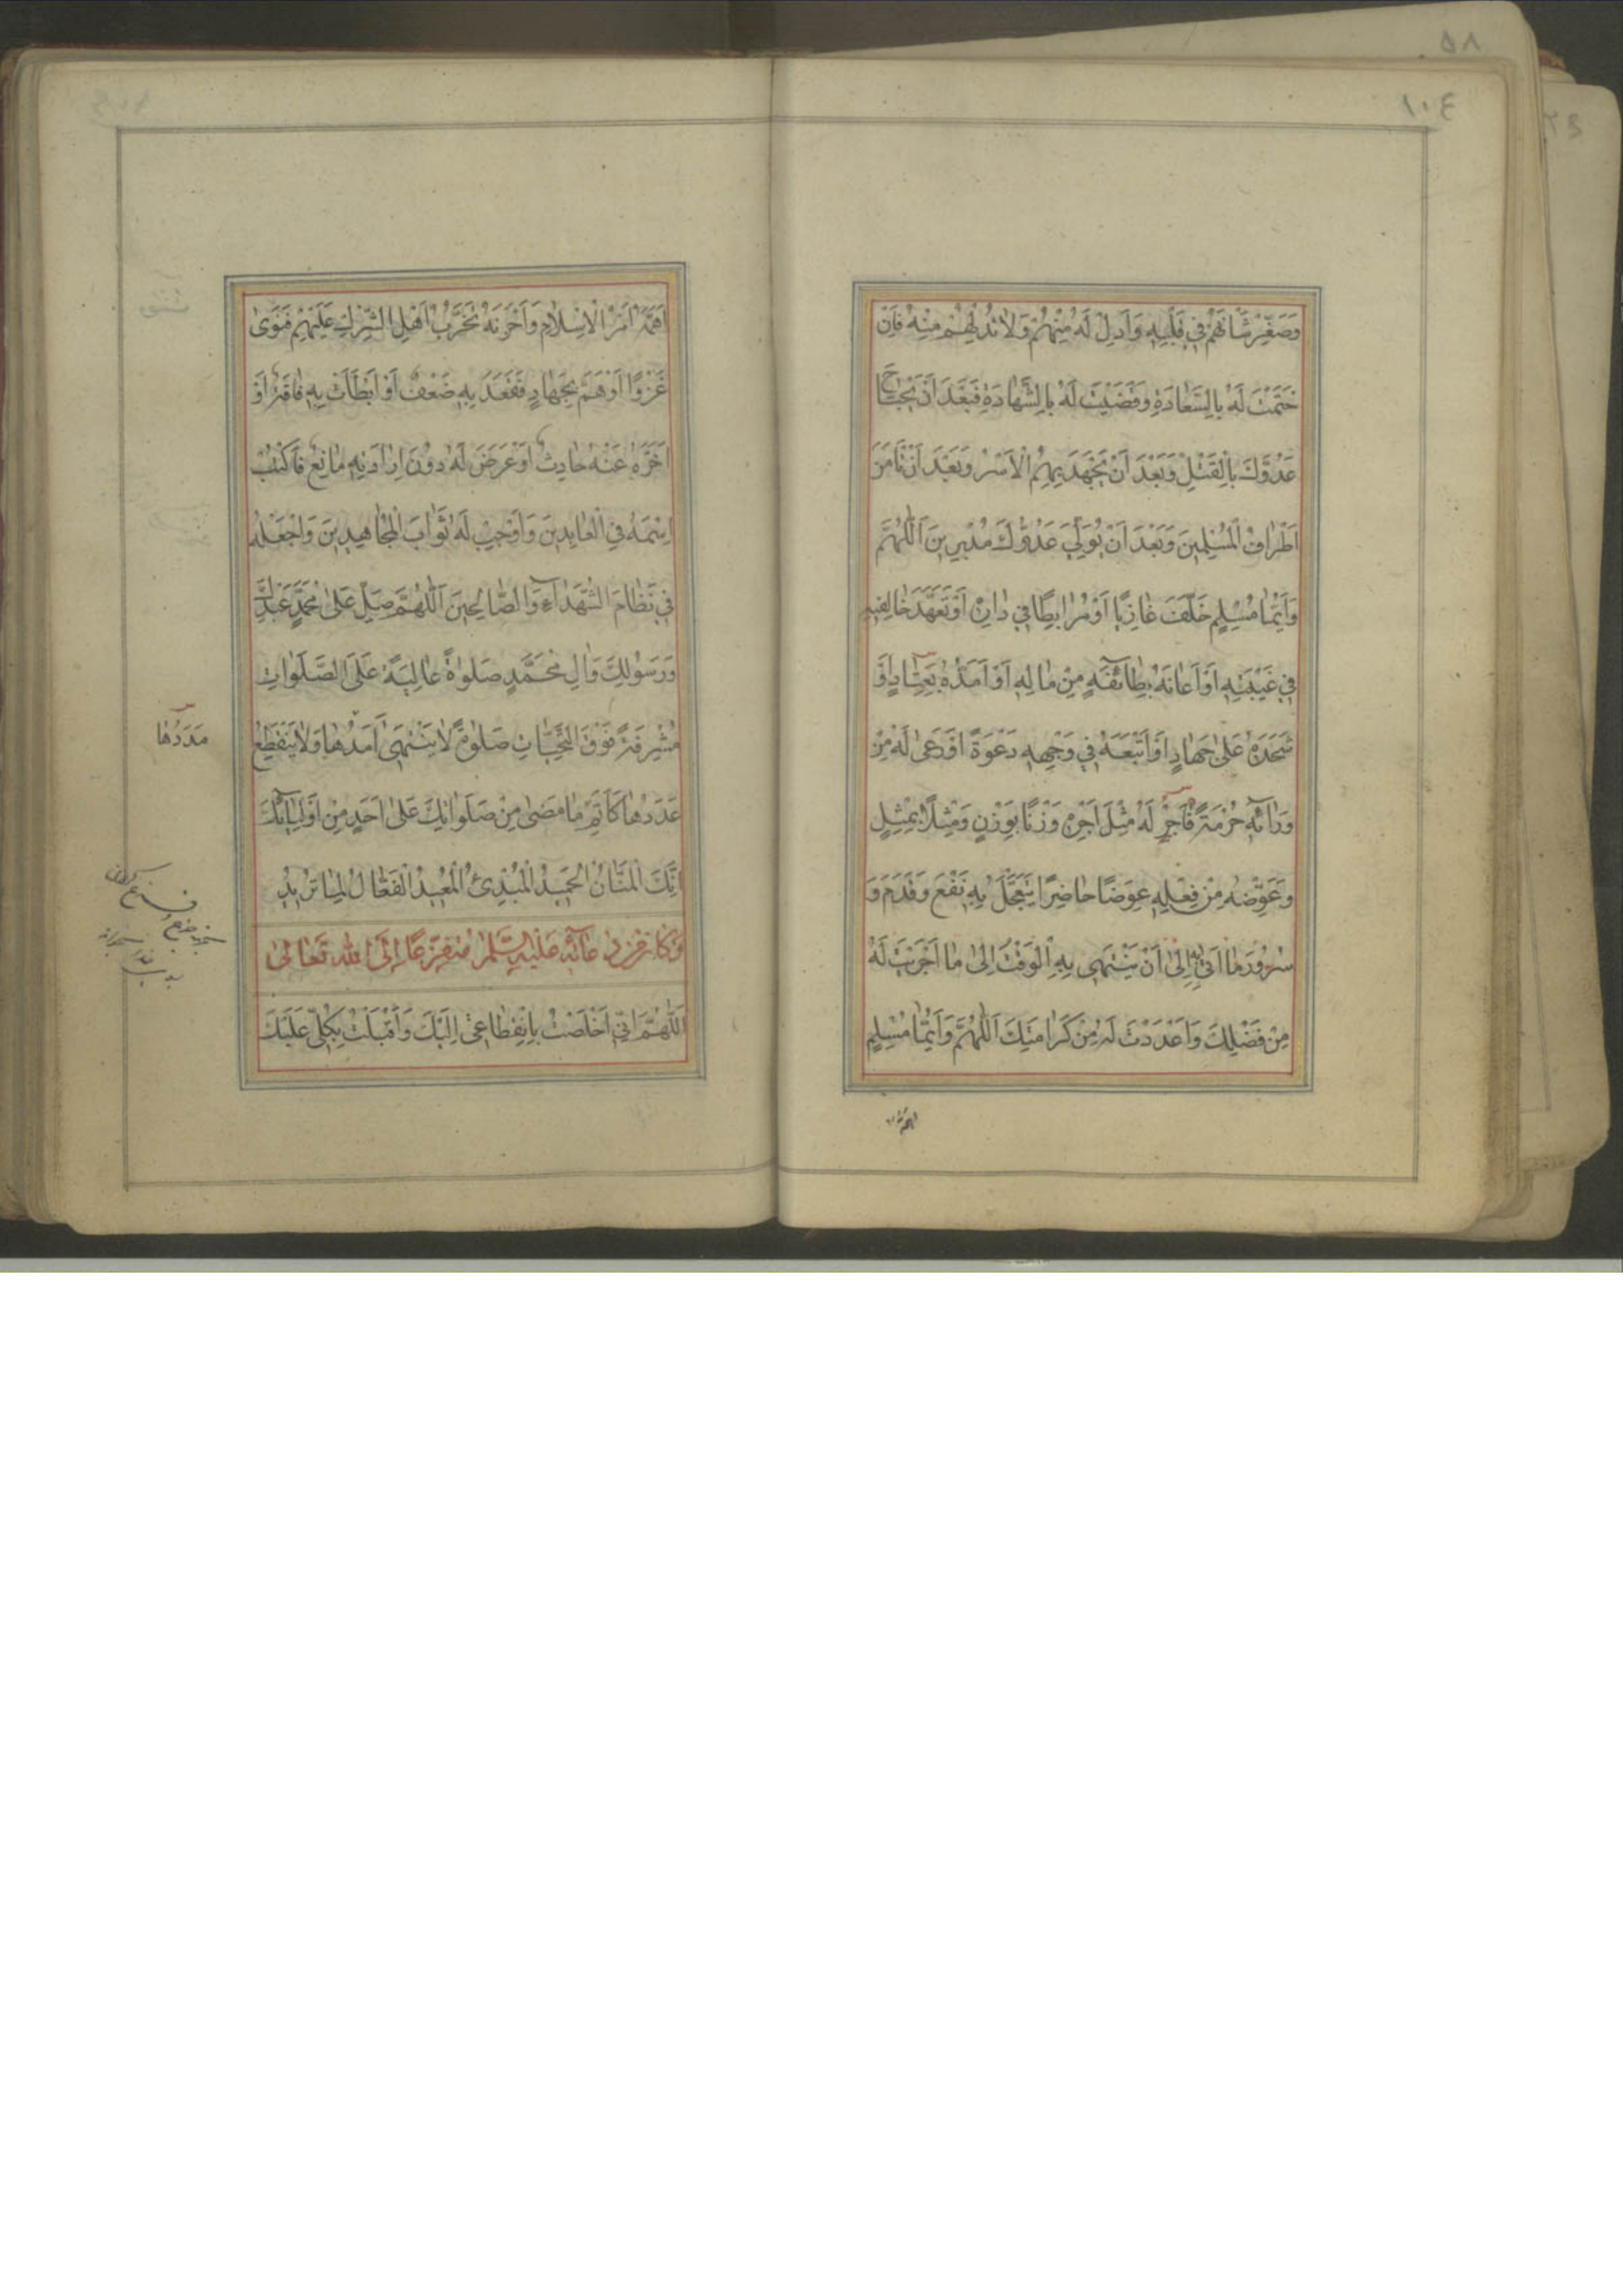 ١٠٤
وَصَغِّرْ شَأْنَهُمْ فِي قَلْبِهِ وَاَدِلْ لَهُ مِنْهُمْ وَلَا تُدِلْهُمْ مِنْهُ فَاِنْ
خَتَمْتَ لَهُ بِالسَّعَادَةِ وَقَضَيْتَ لَهُ بِالشَّهَادَةِ فَبَعْدَ اَنْ يَجْتَاحَ
عَدُوَّكَ بِالْقَتْلِ وَبَعْدَ اَنْ يَجْهَدَ بِهِمُ الْاَسْرُ وَبَعْدَ اَنْ تَأْمَنَ
اَطْرَافُ الْمُسْلِمِينَ وَبَعْدَ اَنْ يُوَلِّيَ عَدُوُّكَ مُدْبِرِينَ اَللّٰهُمَّ
وَاَيُّمَا مُسْلِمٍ خَلَفَ غَازِيًا اَوْ مُرَابِطًا فِي دَارِهِ اَوْ تَعَهَّدَ خَالِفِيهِ
فِي غَيْبَتِهِ اَوْ اَعَانَهُ بِطَائِفَةٍ مِنْ مَالِهِ اَوْ اَمَدَّهُ بِعِتَادٍ اَوْ
شَحَذَهُ عَلَى جِهَادٍ اَوْ اَتْبَعَهُ فِي وَجْهِهِ دَعْوَةً اَوْ رَعَى لَهُ مِنْ
وَرَائِهِ حُرْمَةً فَاَجْرِ لَهُ مِثْلَ اَجْرِهِ وَزْنًا بِوَزْنٍ وَمِثْلًا بِمِثْلٍ
وَعَوِّضْهُ مِنْ فِعْلِهِ عِوَضًا حَاضِرًا يَتَعَجَّلُ بِهِ نَفْعَ مَا قَدَّمَ وَ
سُرُورَ مَا اَتَى بِهِ اِلَى اَنْ يَنْتَهِيَ بِهِ الْوَقْتُ اِلَى مَا اَجْرَيْتَ لَهُ
مِنْ فَضْلِكَ وَاَعْدَدْتَ لَهُ مِنْ كَرَامَتِكَ اَللّٰهُمَّ وَاَيُّمَا مُسْلِمٍ
اَهَمَّهُ
اَهَمَّهُ اَمْرُ الْاِسْلَامِ وَاَحْزَنَهُ تَحَزُّبُ اَهْلِ الشِّرْكِ عَلَيْهِمْ فَنَوَى
غَزْوًا اَوْ هَمَّ بِجِهَادٍ فَقَعَدَ بِهِ ضَعْفٌ اَوْ اَبْطَأَتْ بِهِ فَاقَةٌ اَوْ
اَخَّرَهُ عَنْهُ حَادِثٌ اَوْ عَرَضَ لَهُ دُونَ اِرَادَتِهِ مَانِعٌ فَاكْتُبْ
اِسْمَهُ فِي الْعَابِدِينَ وَاَوْجِبْ لَهُ ثَوَابَ الْمُجَاهِدِينَ وَاجْعَلْهُ
فِي نِظَامِ الشُّهَدَاءِ وَالصَّالِحِينَ اَللّٰهُمَّ صَلِّ عَلَى مُحَمَّدٍ عَبْدِكَ
وَرَسُولِكَ وَاٰلِ مُحَمَّدٍ صَلٰوةً عَالِيَةً عَلَى الصَّلَوَاتِ
مُشْرِفَةً فَوْقَ التَّحِيَّاتِ صَلٰوةً لَا يَنْتَهِي اَمَدُهَا وَلَا يَنْقَطِعُ
مَدَدُهَا
عَدَدُهَا كَاَتَمِّ مَا مَضَى مِنْ صَلَوَاتِكَ عَلَى اَحَدٍ مِنْ اَوْلِيَائِكَ
اِنَّكَ الْمَنَّانُ الْحَمِيدُ الْمُبْدِئُ الْمُعِيدُ الْفَعَّالُ لِمَا تُرِيدُ
وَكَانَ مِنْ دُعَائِهِ عَلَيْهِ السَّلَامُ مُتَفَزِّعًا اِلَى اللهِ تَعَالَى
اَللّٰهُمَّ اِنِّي اَخْلَصْتُ بِانْقِطَاعِي اِلَيْكَ وَاَقْبَلْتُ بِكُلِّي عَلَيْكَ